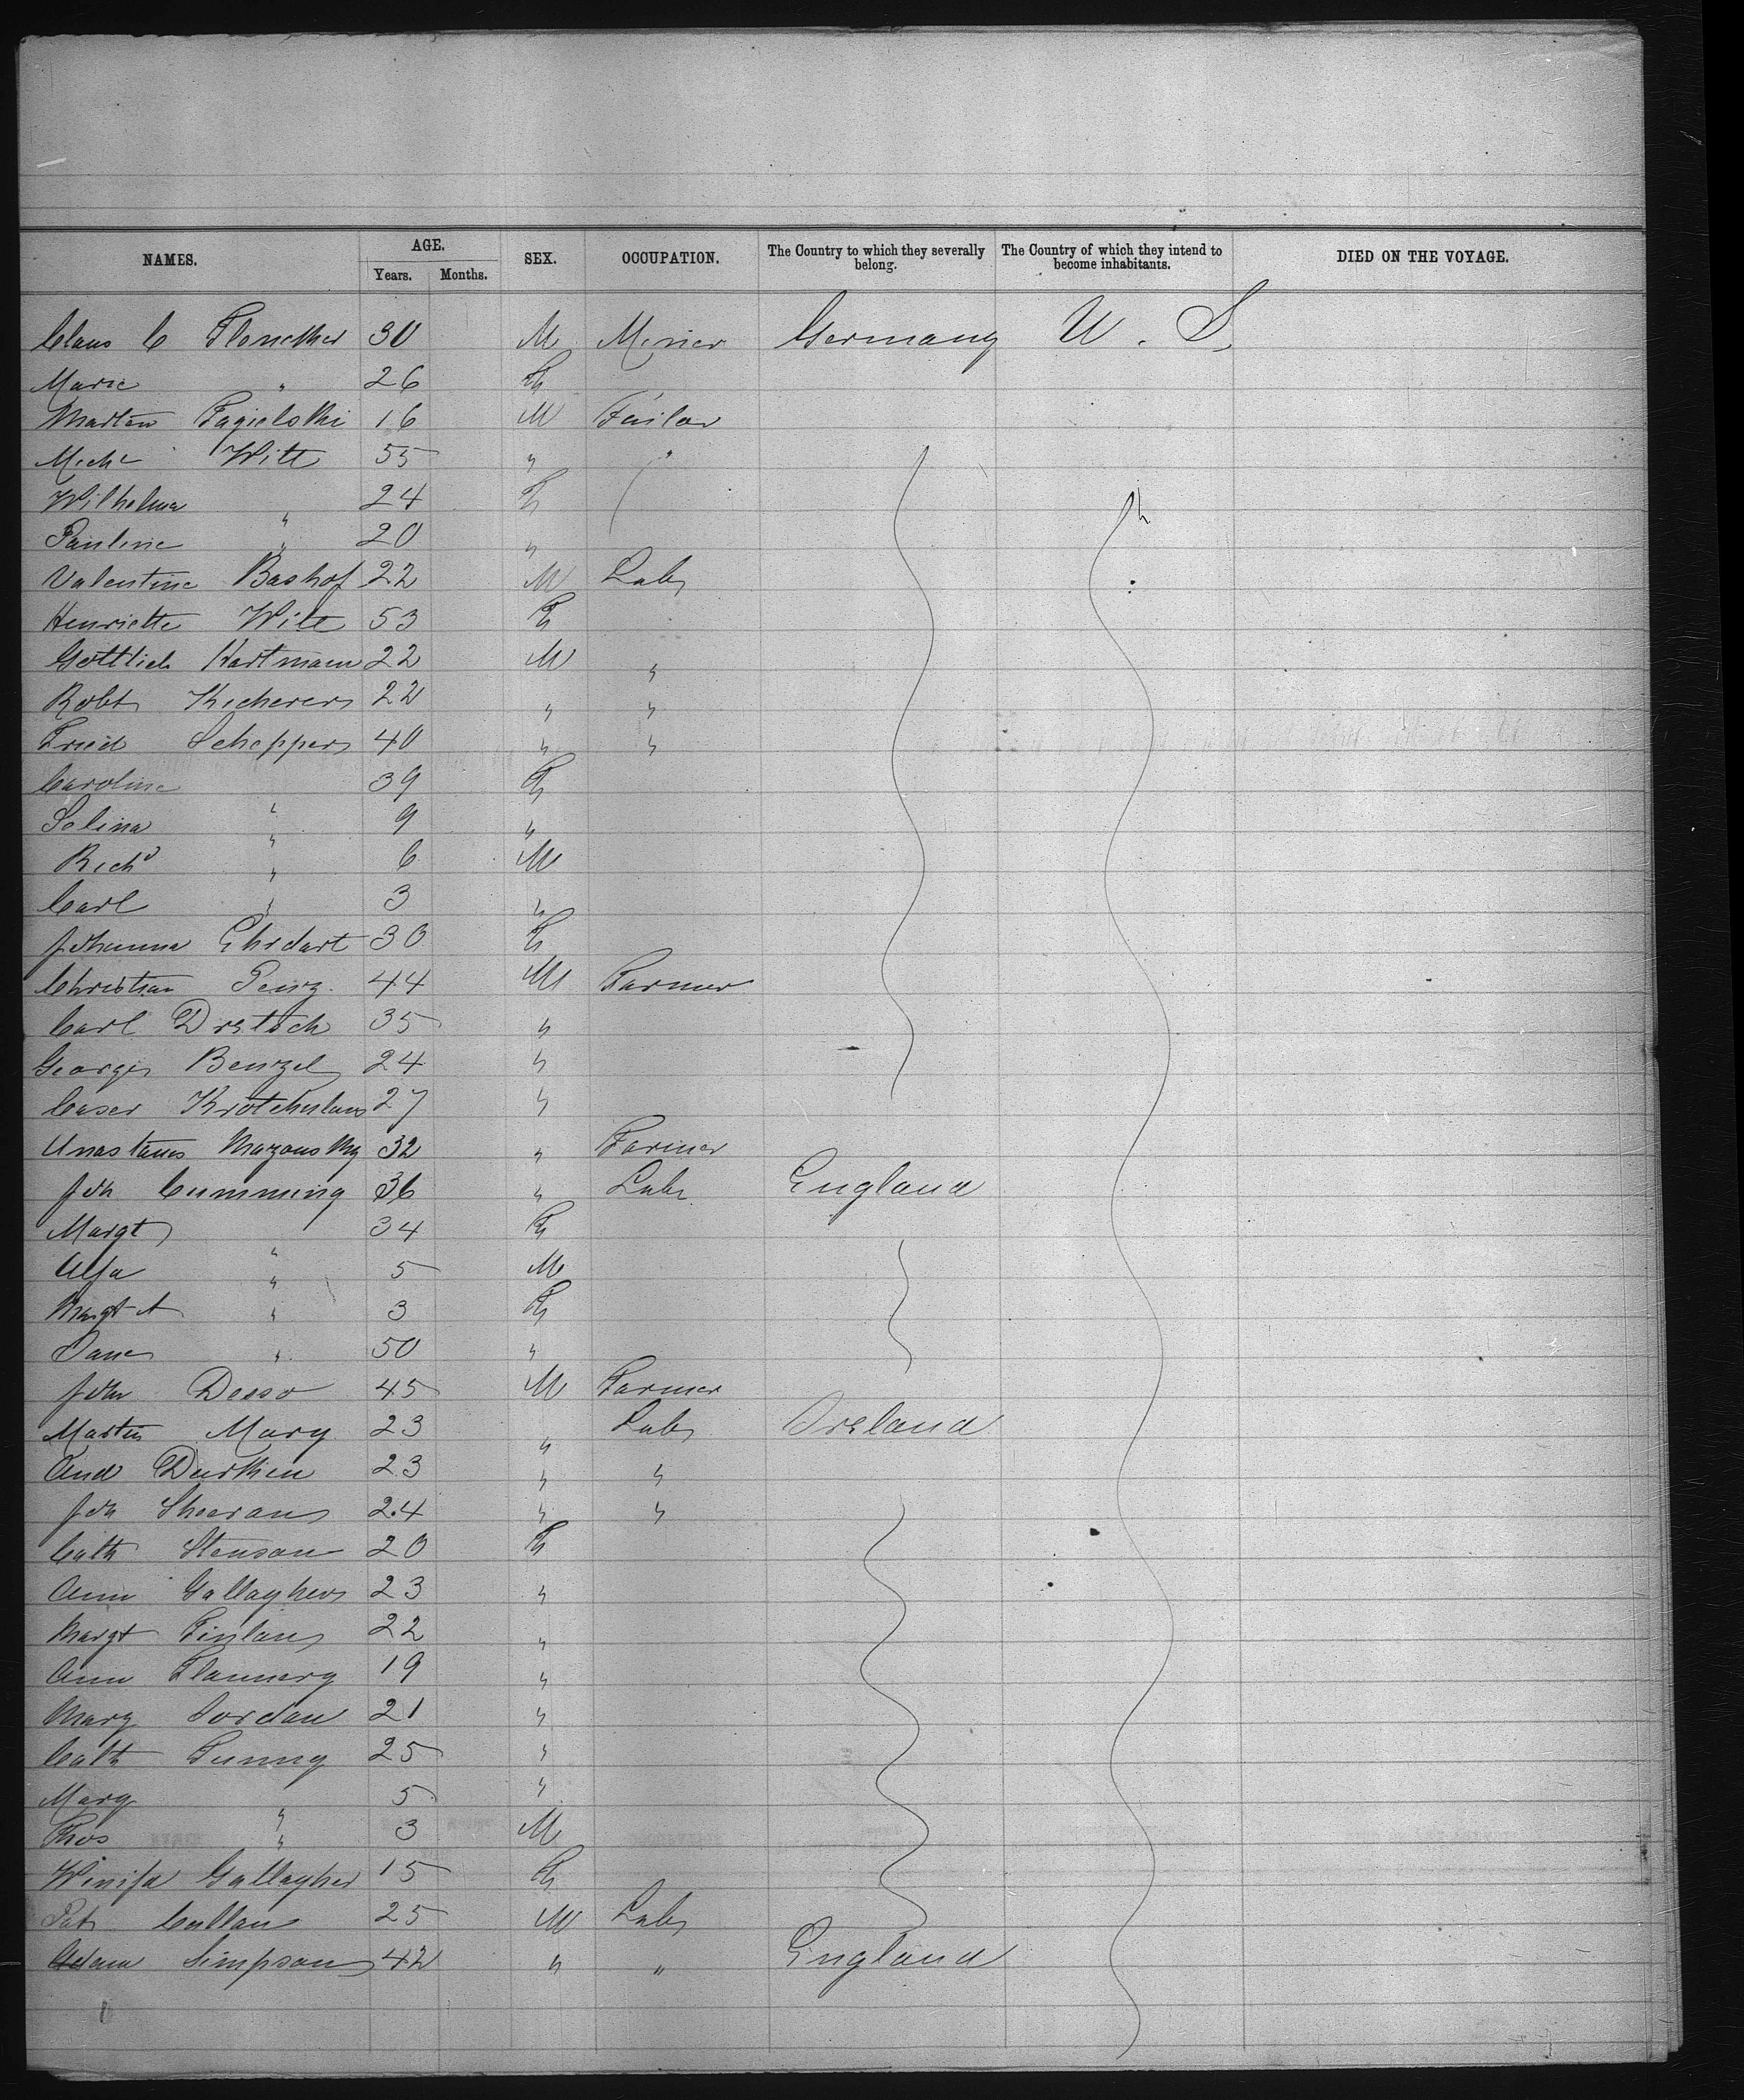 NAMES. AGE. SEX. OCCUPATION. The Country to which they severally belong. The Country of which they intend to become inhabitants. DIED ON THE VOYAGE.
Years. Months.
Claus C 30 M Miner Germany U. S.
Marie " 26 F
Martin 16 M Tailor
Michl Witt 55 " "
Wilhelma " 24 F
Pauline " 20 "
Valentine Bashof 22 M Labr
Henriette Witt 53 F
Gottlieb Hartmann 22 M "
Robt Kicherer 22 " "
Fried Scheppers 40 " "
Caroline " 39 F
Selina " 9 "
Richd " 6 M
Carl " 3 "
Johanna Ehrdart 30 F
Christian Penz 44 M Farmer
Carl 35 "
George Benzel 24 "
Caser 27 "
32 " Farmer
Jon Cumming 36 " Labr England
Margt " 34 F
" 5 M
Margt A " 3 F
Jane " 50 "
John Desso 45 M Farmer
Martin Mary 23 " Labr Ireland
And Durkin 23 " "
Jon Sheeran 24 " "
Cath Stenson 20 F
Ann Gallagher 23 "
Margt Finlan 22 "
Ann Flannery 19 "
Mary Jordan 21 "
Cath Tunny 25 "
Mary " 5 "
Thos " 3 M
Winifd Gallagher 15 F
Pat Cullan 25 M Labr
Adam Simpson 42 " " England